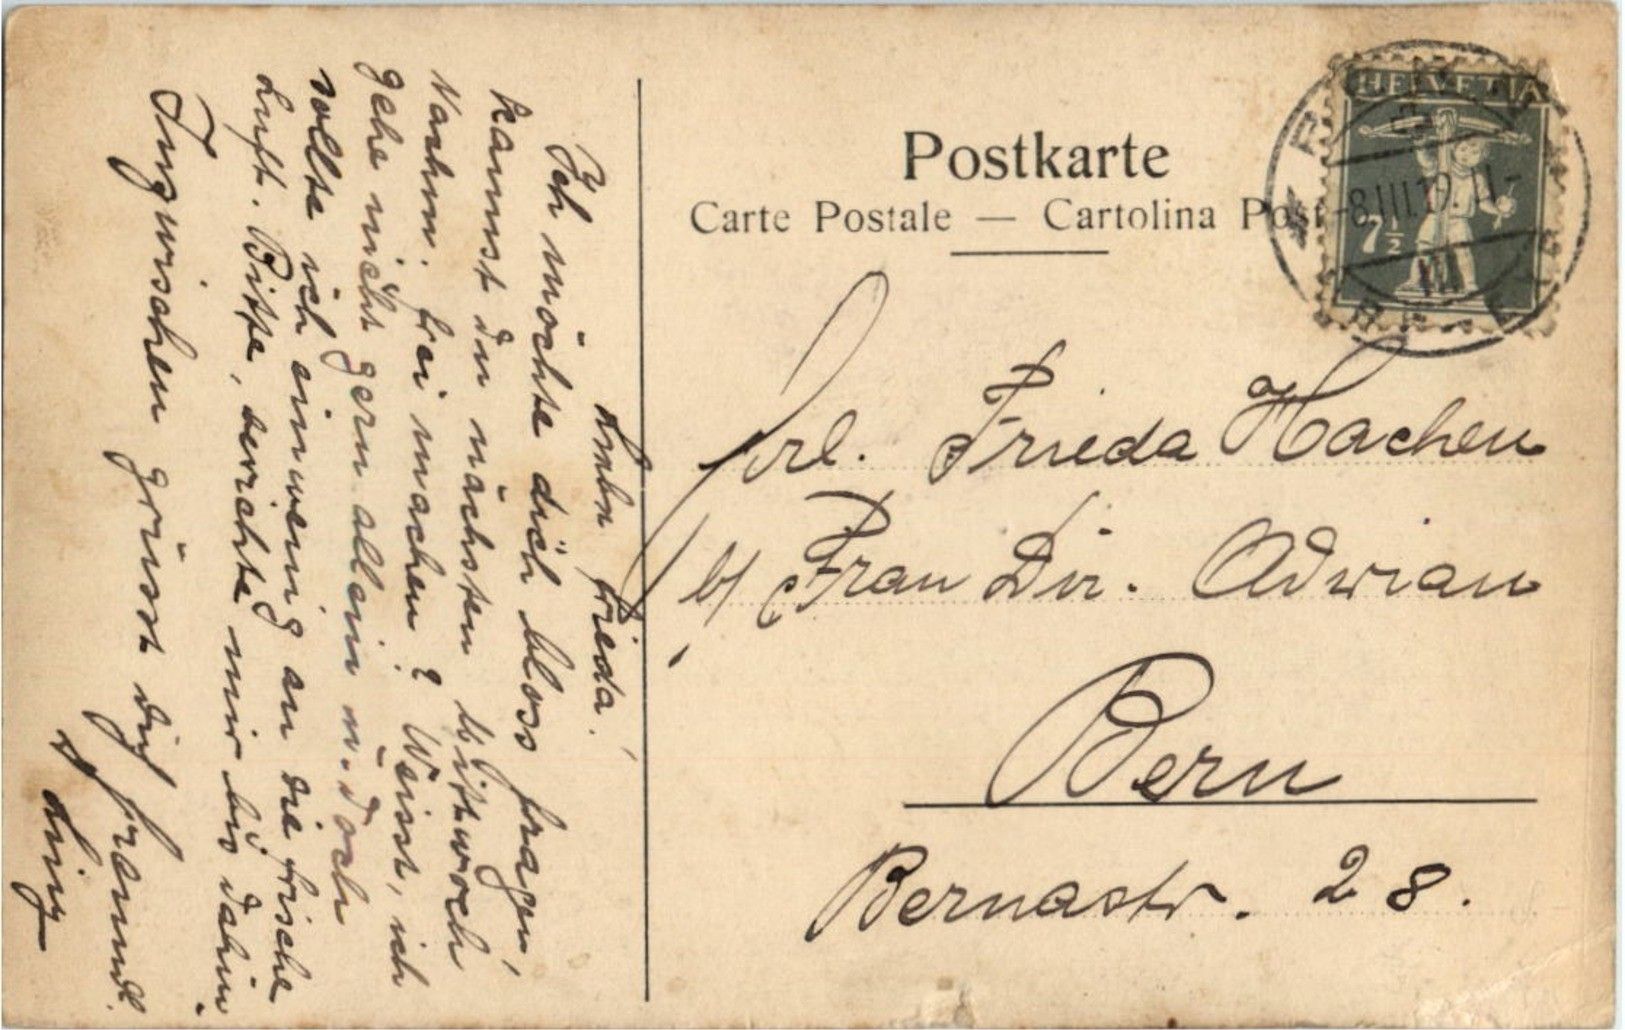 Postkarte
Carte Postale — Cartolina Post
HELVETIA
7½
-8.III.19.11-
BERN
Frl. Frieda Hachen
b/ Frau Dir. Adrian
Bern
Bernastr. 28.
Liebe Frieda!
Ich möchte dich bloss fragen,
kannst du nächsten Mittwoch
Nachm. frei machen? Weisst, ich
gehe nicht gern allein u. doch
sollte ich ein wenig an die frische
Luft. Bitte, berichte mir bis dahin.
Inzwischen grüsst dich freundl.